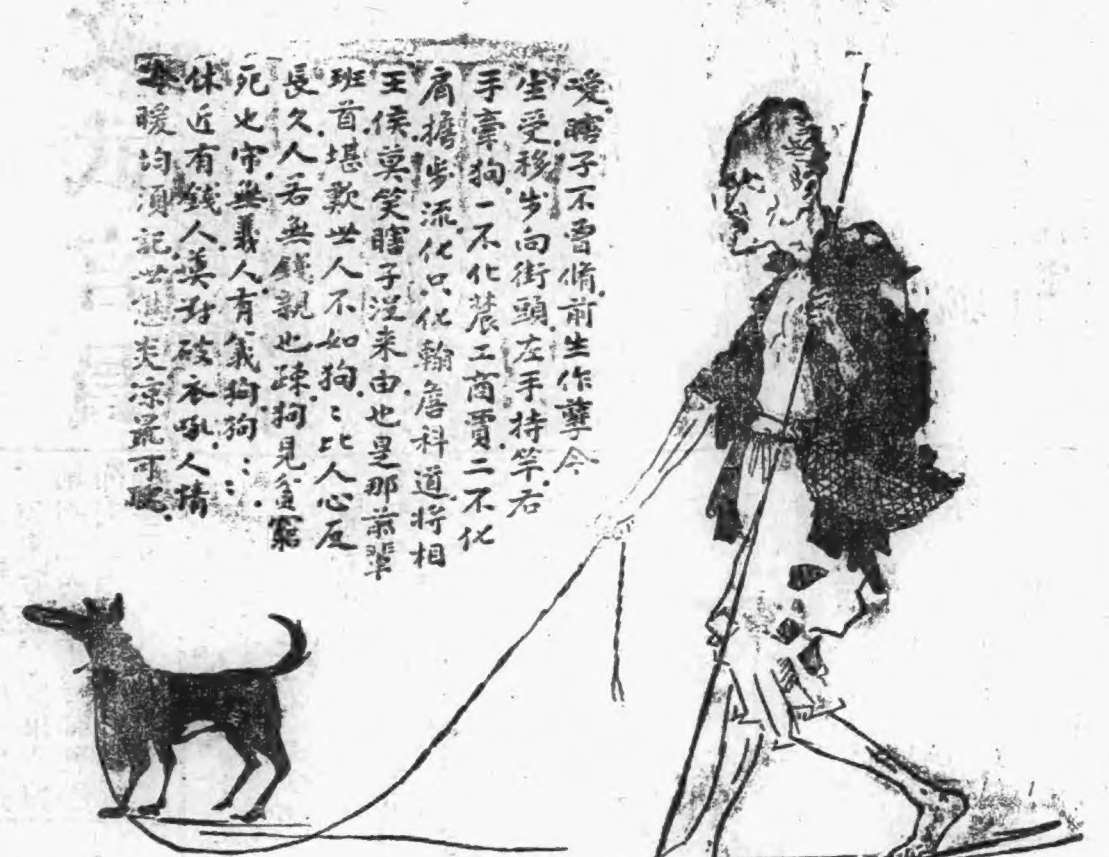 嗳瞎子不曾脩前生作孽今
生受移步向街頭左手持竿右
手牽狗一不化農工商賈二不化
肩擔步流化口化翰詹科道將相
王侯莫笑瞎子沒来由也是那前輩
班首堪歎世人不如狗：比人心反
長久人若無錢親也踈狗見貧窮
死也守無義人有義狗狗：：
休近有錢人莫對破衣吼人情
暖均須記世態炎涼最可